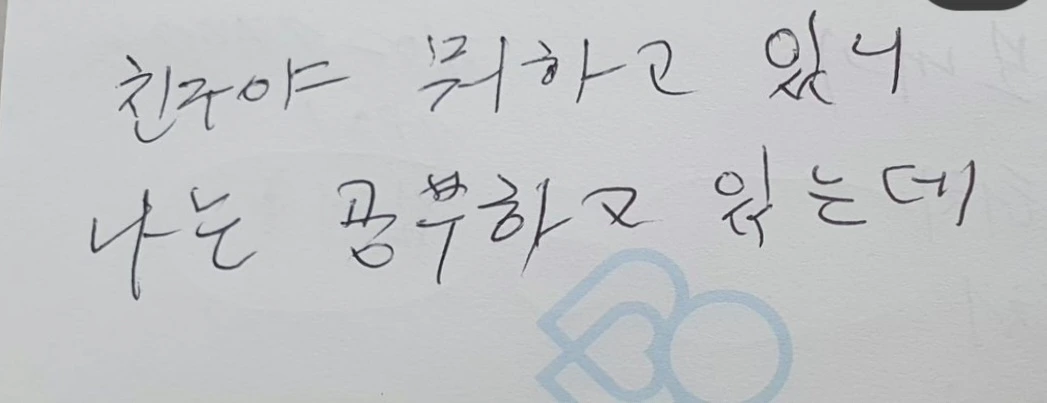 친구야 뭐하고 있니
나는 공부하고 있는데